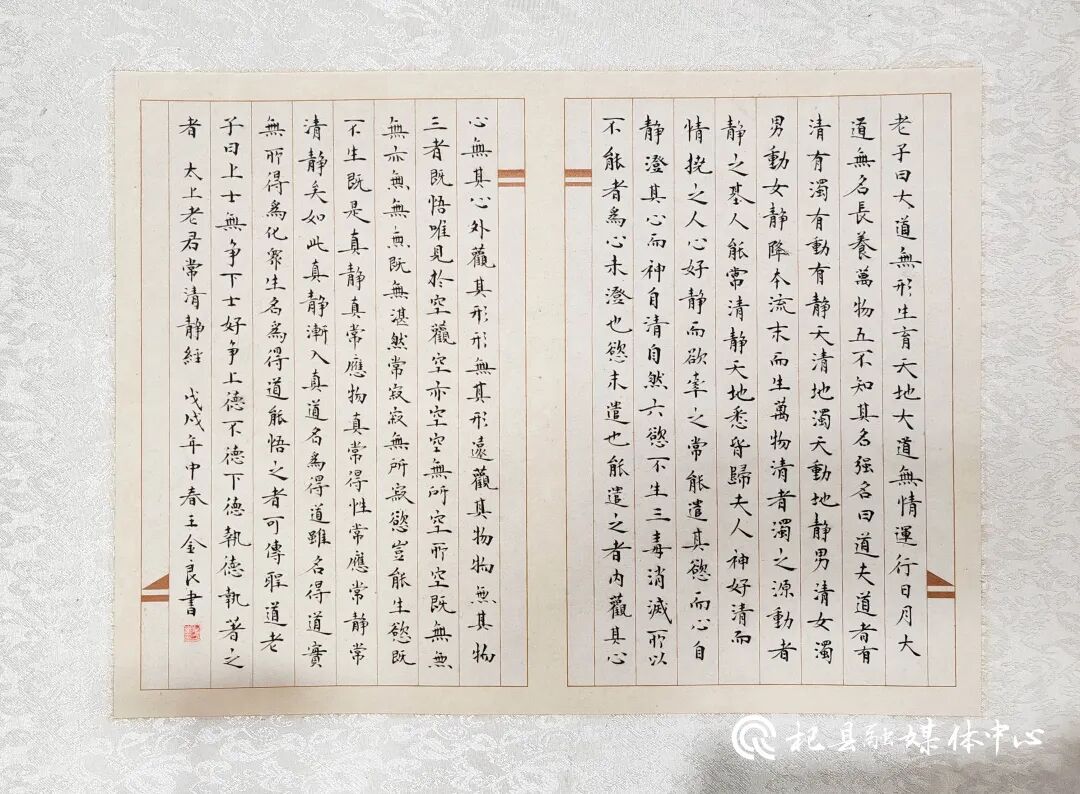 老子曰大道無形生育天地大道無情運行日月大
道無名長養萬物五不知其名强名曰道夫道者有
清有濁有動有静天清地濁天動地静男清女濁
男動女静降本流末而生萬物清者濁之源動者
静之基人能常清静天地悉皆歸夫人神好清而
情撓之人心好静而欲牽之常能遣其慾而心自
静澄其心而神自清自然六慾不生三毒消滅所以
不能者為心未澄也慾未遣也能遣之者内觀其心
心無其心外觀其形形無其形遠觀其物物無其物
三者既悟唯見於空觀空亦空空無所空所空既無無
無亦無無無既無湛然常寂寂無所寂慾豈能生慾既
不生既是真静真常應物真常得性常應常静常
清静矣如此真静漸入真道名為得道雖名得道實
無所得為化衆生名為得道能悟之者可傳聖道老
子曰上士無争下士好争上德不德下德執德執著之
者 太上老君常清静經 戊戌年中春王金良書
杞县融媒体中心